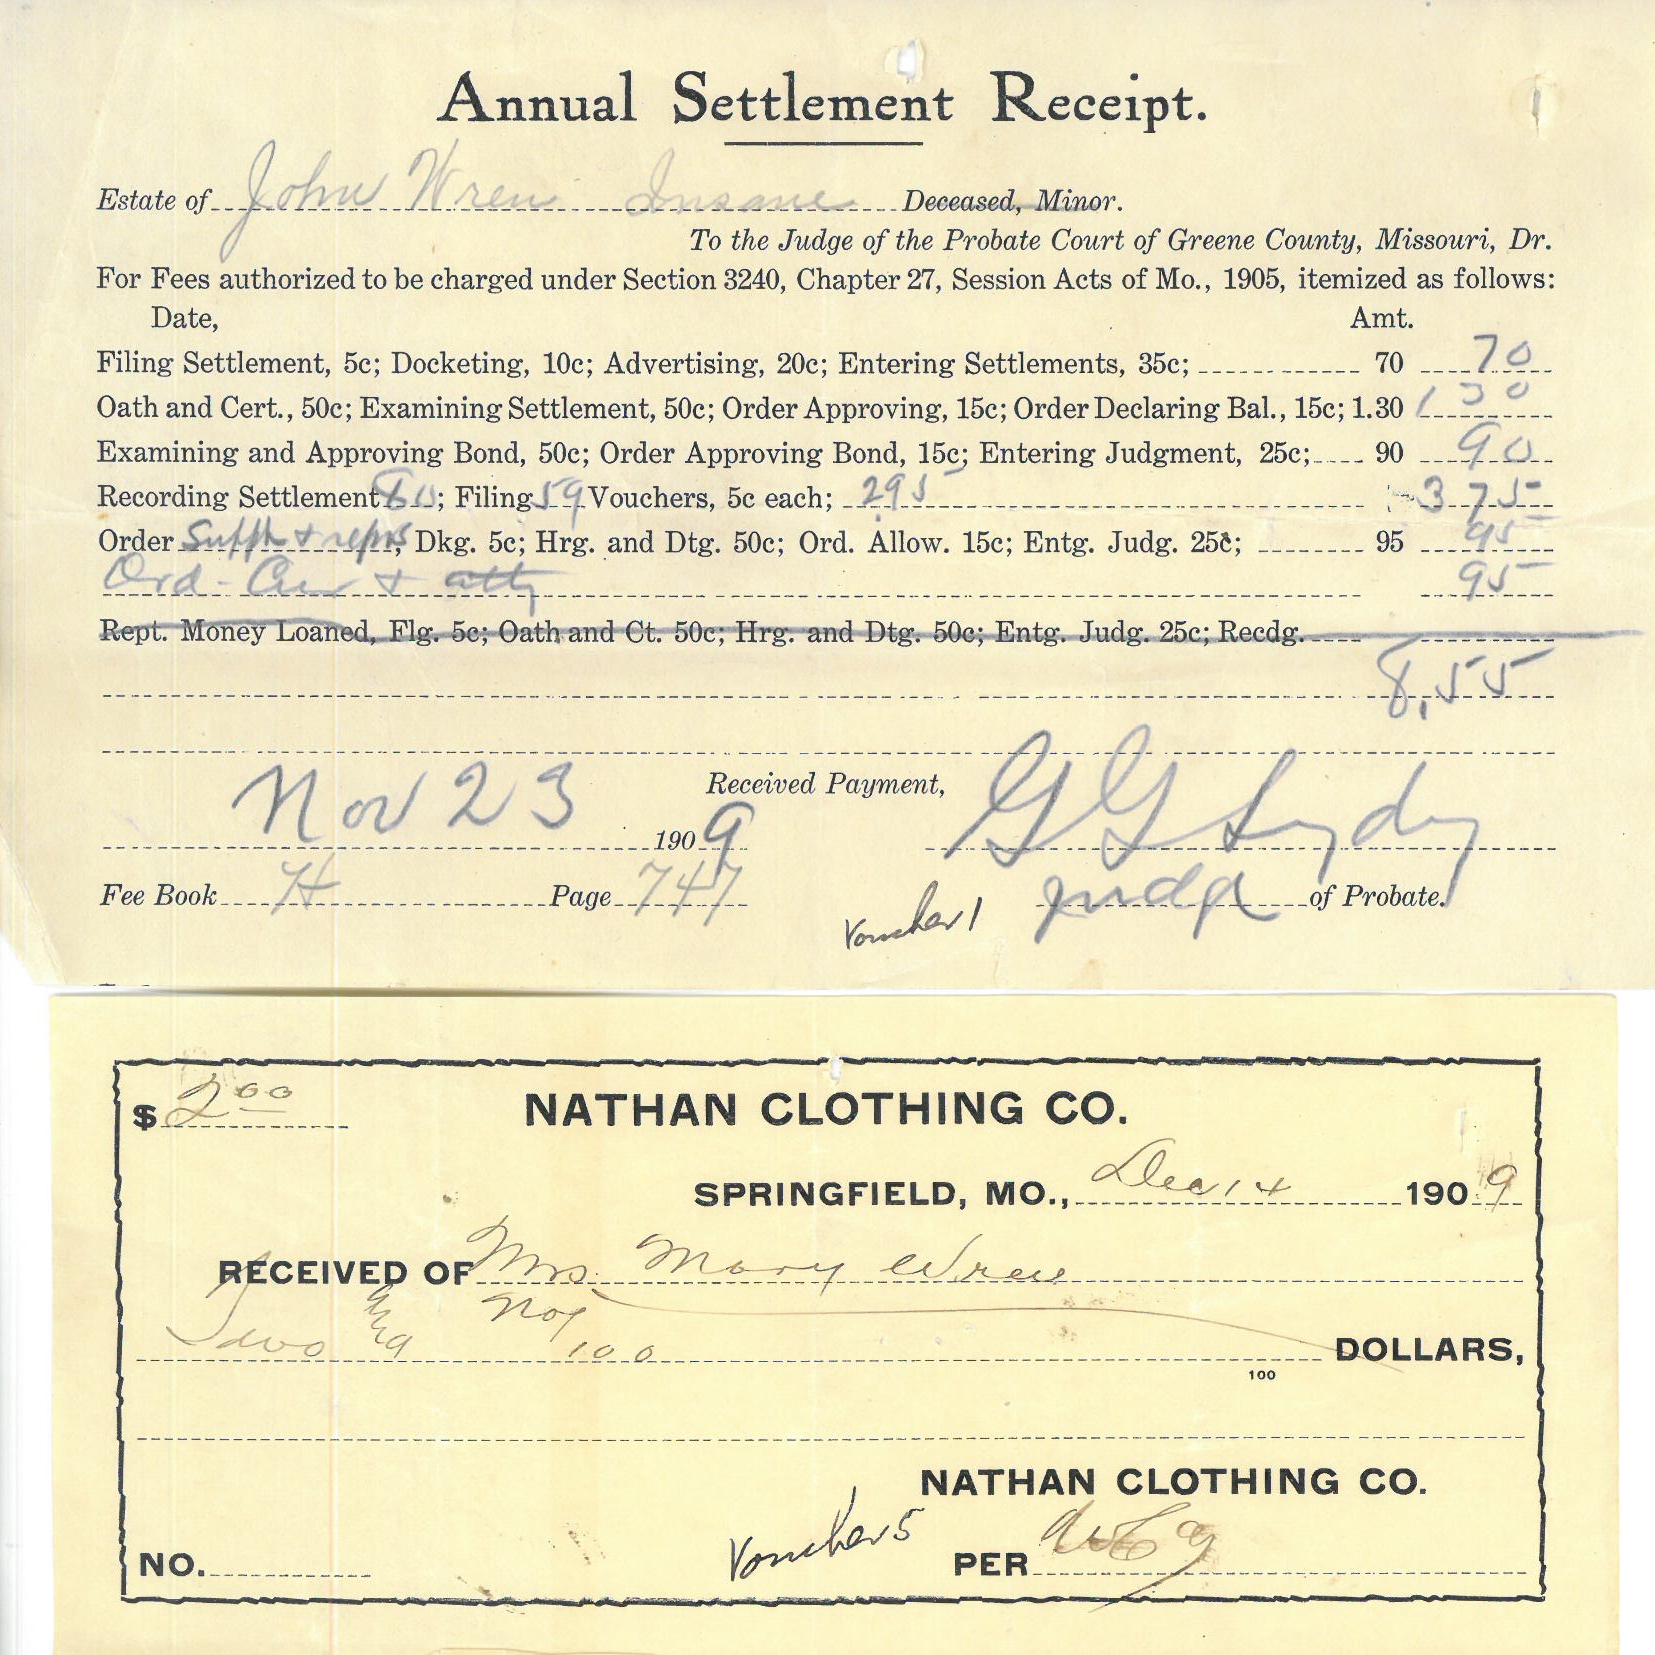 Annual Settlement Receipt.
Estate of John Wren Insane Deceased, Minor.
To the Judge of the Probate Court of Greene County, Missouri, Dr.
For Fees authorized to be charged under Section 3240, Chapter 27, Session Acts of Mo., 1905, itemized as follows:
Date, Amt.
Filing Settlement, 5c; Docketing, 10c; Advertising, 20c; Entering Settlements, 35c; 70 70
Oath and Cert., 50c; Examining Settlement, 50c; Order Approving, 15c; Order Declaring Bal., 15c; 1.30 1 30
Examining and Approving Bond, 50c; Order Approving Bond, 15c; Entering Judgment, 25c; 90 90
Recording Settlement 80; Filing 59 Vouchers, 5c each; 295 3 75
Order & , Dkg. 5c; Hrg. and Dtg. 50c; Ord. Allow. 15c; Entg. Judg. 25c; 95 95
Ord - & atty 95
Rept. Money Loaned, Flg. 5c; Oath and Ct. 50c; Hrg. and Dtg. 50c; Entg. Judg. 25c; Recdg.
8,55
Received Payment,
Nov 23 1909 G G Lydy
Fee Book H Page 747 Judge of Probate.
Voucher 1
$ 2 00 NATHAN CLOTHING CO.
SPRINGFIELD, MO., Dec 14 1909
RECEIVED OF Mrs. Mary Wren
Two and no/100 DOLLARS,
100
NATHAN CLOTHING CO.
Voucher 5
NO. PER